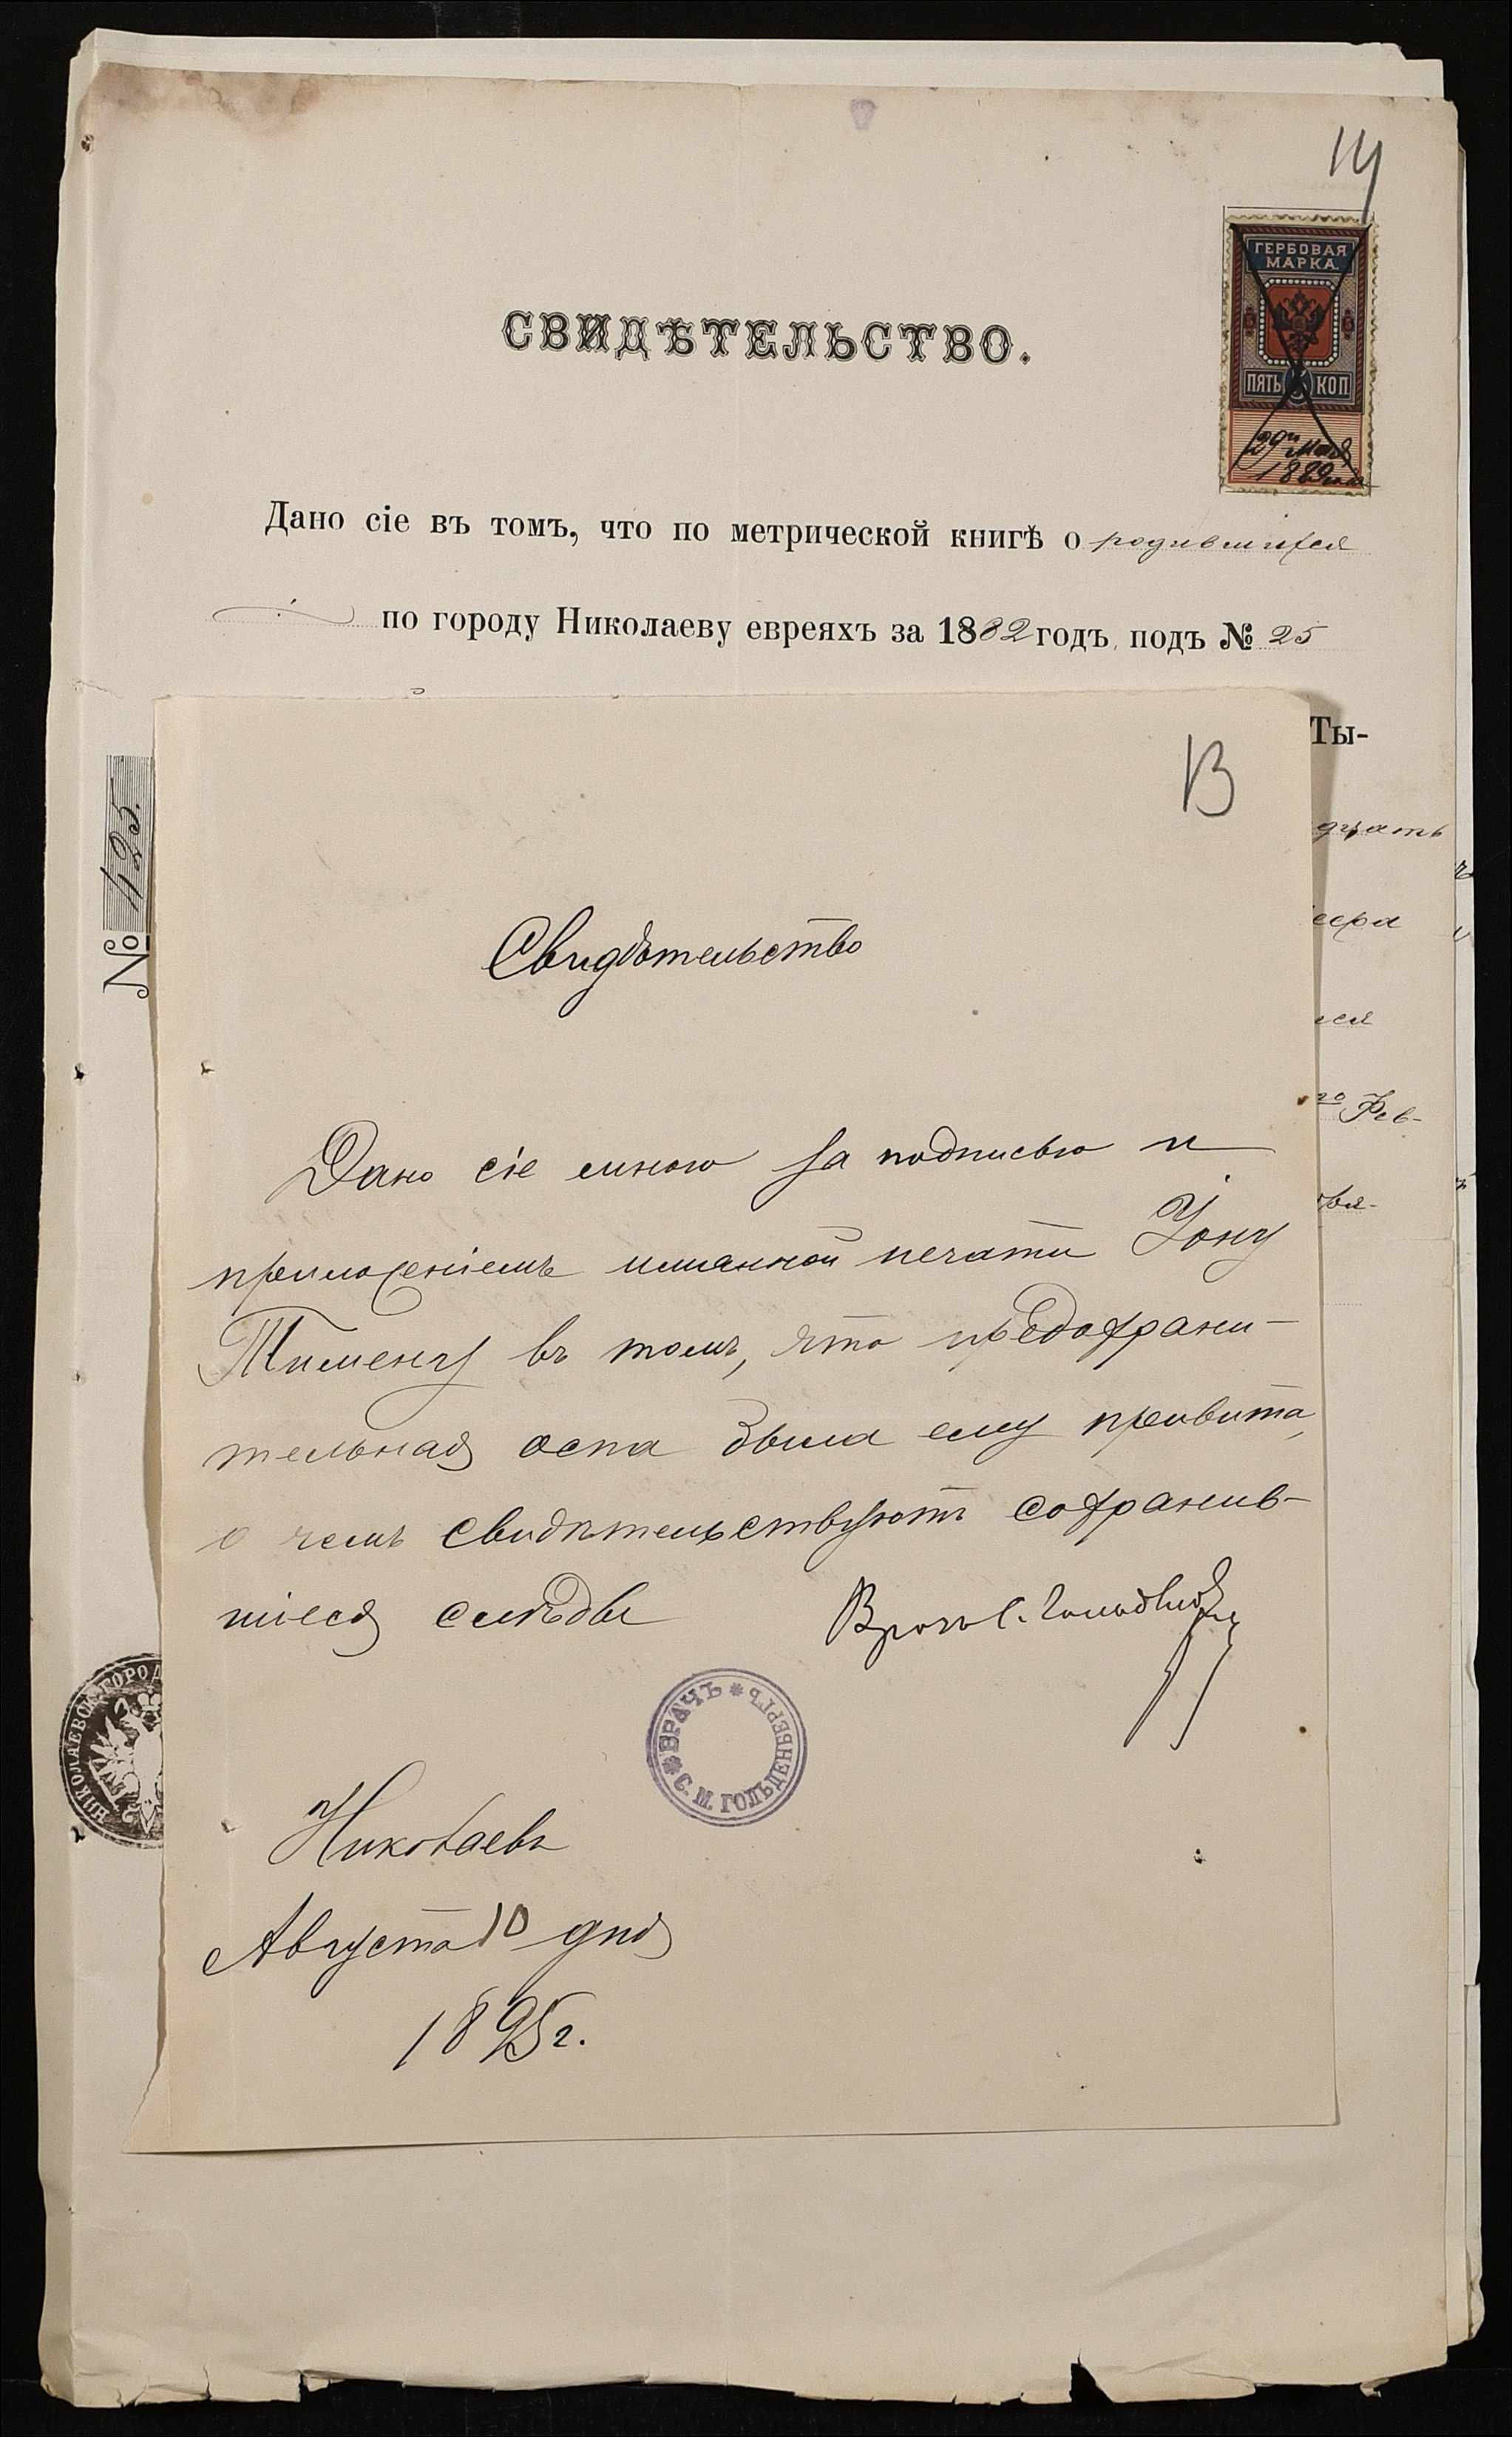 14
ГЕРБОВАЯ
МАРКА
5 5
ПЯТЬ 5 КОП
29го Мая
1889 года
СВИДѢТЕЛЬСТВО.
Дано сіе въ томъ, что по метрической книгѣ о родившихся
по городу Николаеву евреяхъ за 1882 годъ, подъ № 25
Ты-
дцать
ся
го Фев-
№ 425.
13
Свидѣтельство
Дано сіе мною за подписью и
приложеніемъ имянной печати Іону
Тимену въ томъ, что предохрани-
тельная оспа была ему привита,
о чемъ свидѣтельствуютъ сохранив-
шіеся слѣды
Врачъ С. Гольденбергъ
ВРАЧЪ * С. М. ГОЛЬДЕНБЕРГЪ *
НИКОЛАЕВСК ГОРОД
Николаевъ
Августа 10 дня
1895 г.